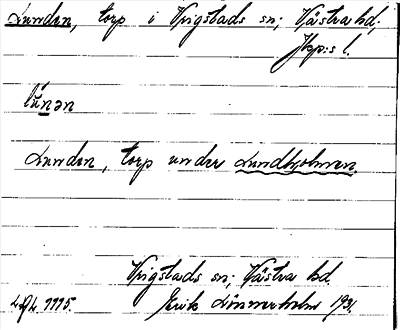 Lunden, torp i Vrigstads sn; Västra hd;
Jkps l.
lu̇nən
Lunden, torp under Lundholmen.
Vrigstads sn; Västra hd.
Erik Linnerholm 1931